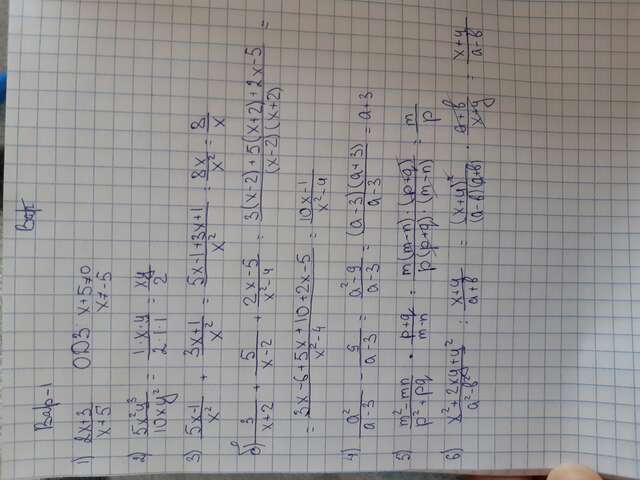 Вар-1 Вар
1) 2x+3/x+5 ОДЗ x+5≠0
x≠-5
2) 5x²y³/10xy² = 1·x·y/2·1·1 = xy/2
3) 5x-1/x² + 3x+1/x² = 5x-1+3x+1/x² = 8x/x² = 8/x
б) 3/x+2 + 5/x-2 + 2x-5/x²-4 = 3(x-2)+5(x+2)+2x-5/(x-2)(x+2) =
= 3x-6+5x+10+2x-5/x²-4 = 10x-1/x²-4
4) a²/a-3 - 9/a-3 = a²-9/a-3 = (a-3)(a+3)/a-3 = a+3
5) m²-mn/p²+pq · p+q/m-n = m(m-n)·(p+q)/p(p+q)·(m-n) = m/p
6) x²+2xy+y²/a²-b² : x+y/a+b = (x+y)²/(a-b)(a+b) · a+b/x+y = x+y/a-b